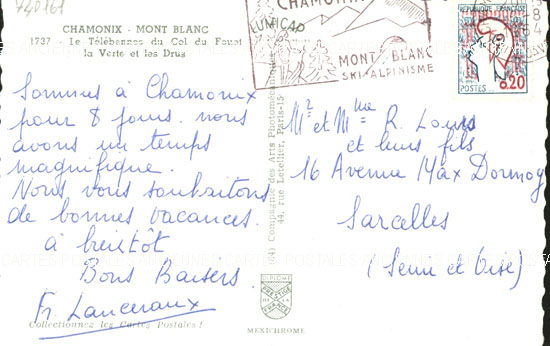 720161
CHAMONIX - MONT BLANC
1737 - Le Télébennes du Col du Fouet
la Verte et les Drus
CHAMONIX
MONT BLANC
SKI-ALPINISME
REPUBLIQUE FRANÇAISE
POSTES 0.20
Sommes à Chamonix
pour 8 jours. nous
avons un temps
magnifique.
Nous vous souhaitons
de bonnes vacances.
à bientôt
Bons Baisers
Fr. Lanceraux
Collectionnez les Cartes Postales !
Compagnie des Arts Photomécaniques
44, rue Letellier, Paris-15
Mr et Mme R. Louis
et leurs fils
16 Avenue Max Dormoy
Sarcelles
(Seine et Oise)
DIPLOME
PRESTIGE
DE LA
FRANCE
MEXICHROME
CARTES POSTALES ANCIENNES